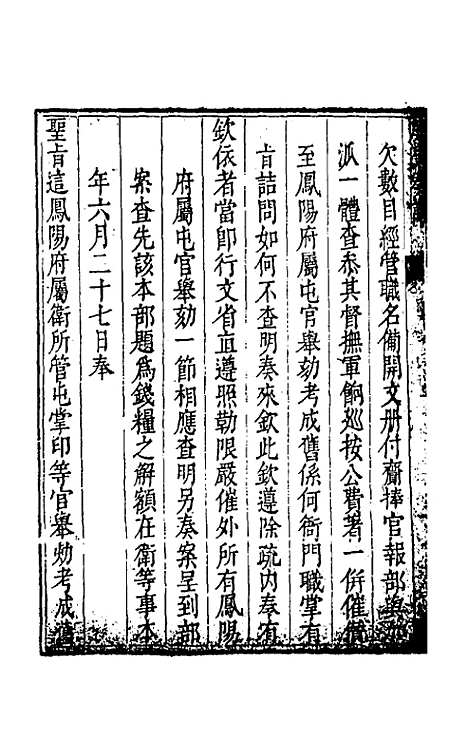 欠數目經管職名備開文册付齎捧官報部
派一體查叅其督撫軍餉廵按公費著一併催
至鳳陽府屬屯官舉劾考成舊係何衙門職掌有
旨詰問如何不查明奏來欽此欽遵除疏內奏有
欽依者當即行文省直遵照勒限嚴催外所有鳳陽
府屬屯官舉劾一節相應查明另奏案呈到部
案查先該本部題爲錢糧之解額在衛等事本
年六月二十七日奉
聖旨這鳳陽府屬衛所管屯掌印等官舉劾考成舊